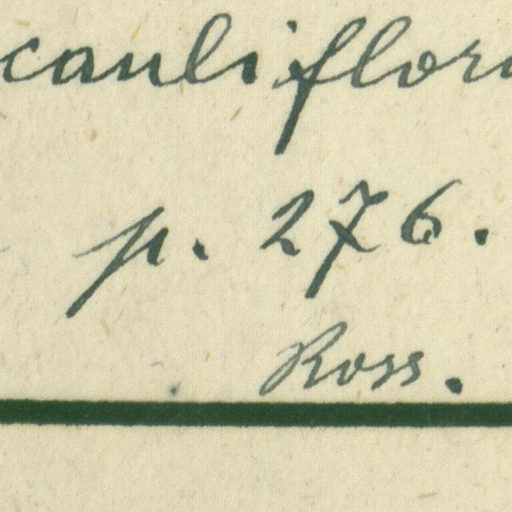 cauliflora
p. 276.
Ross.